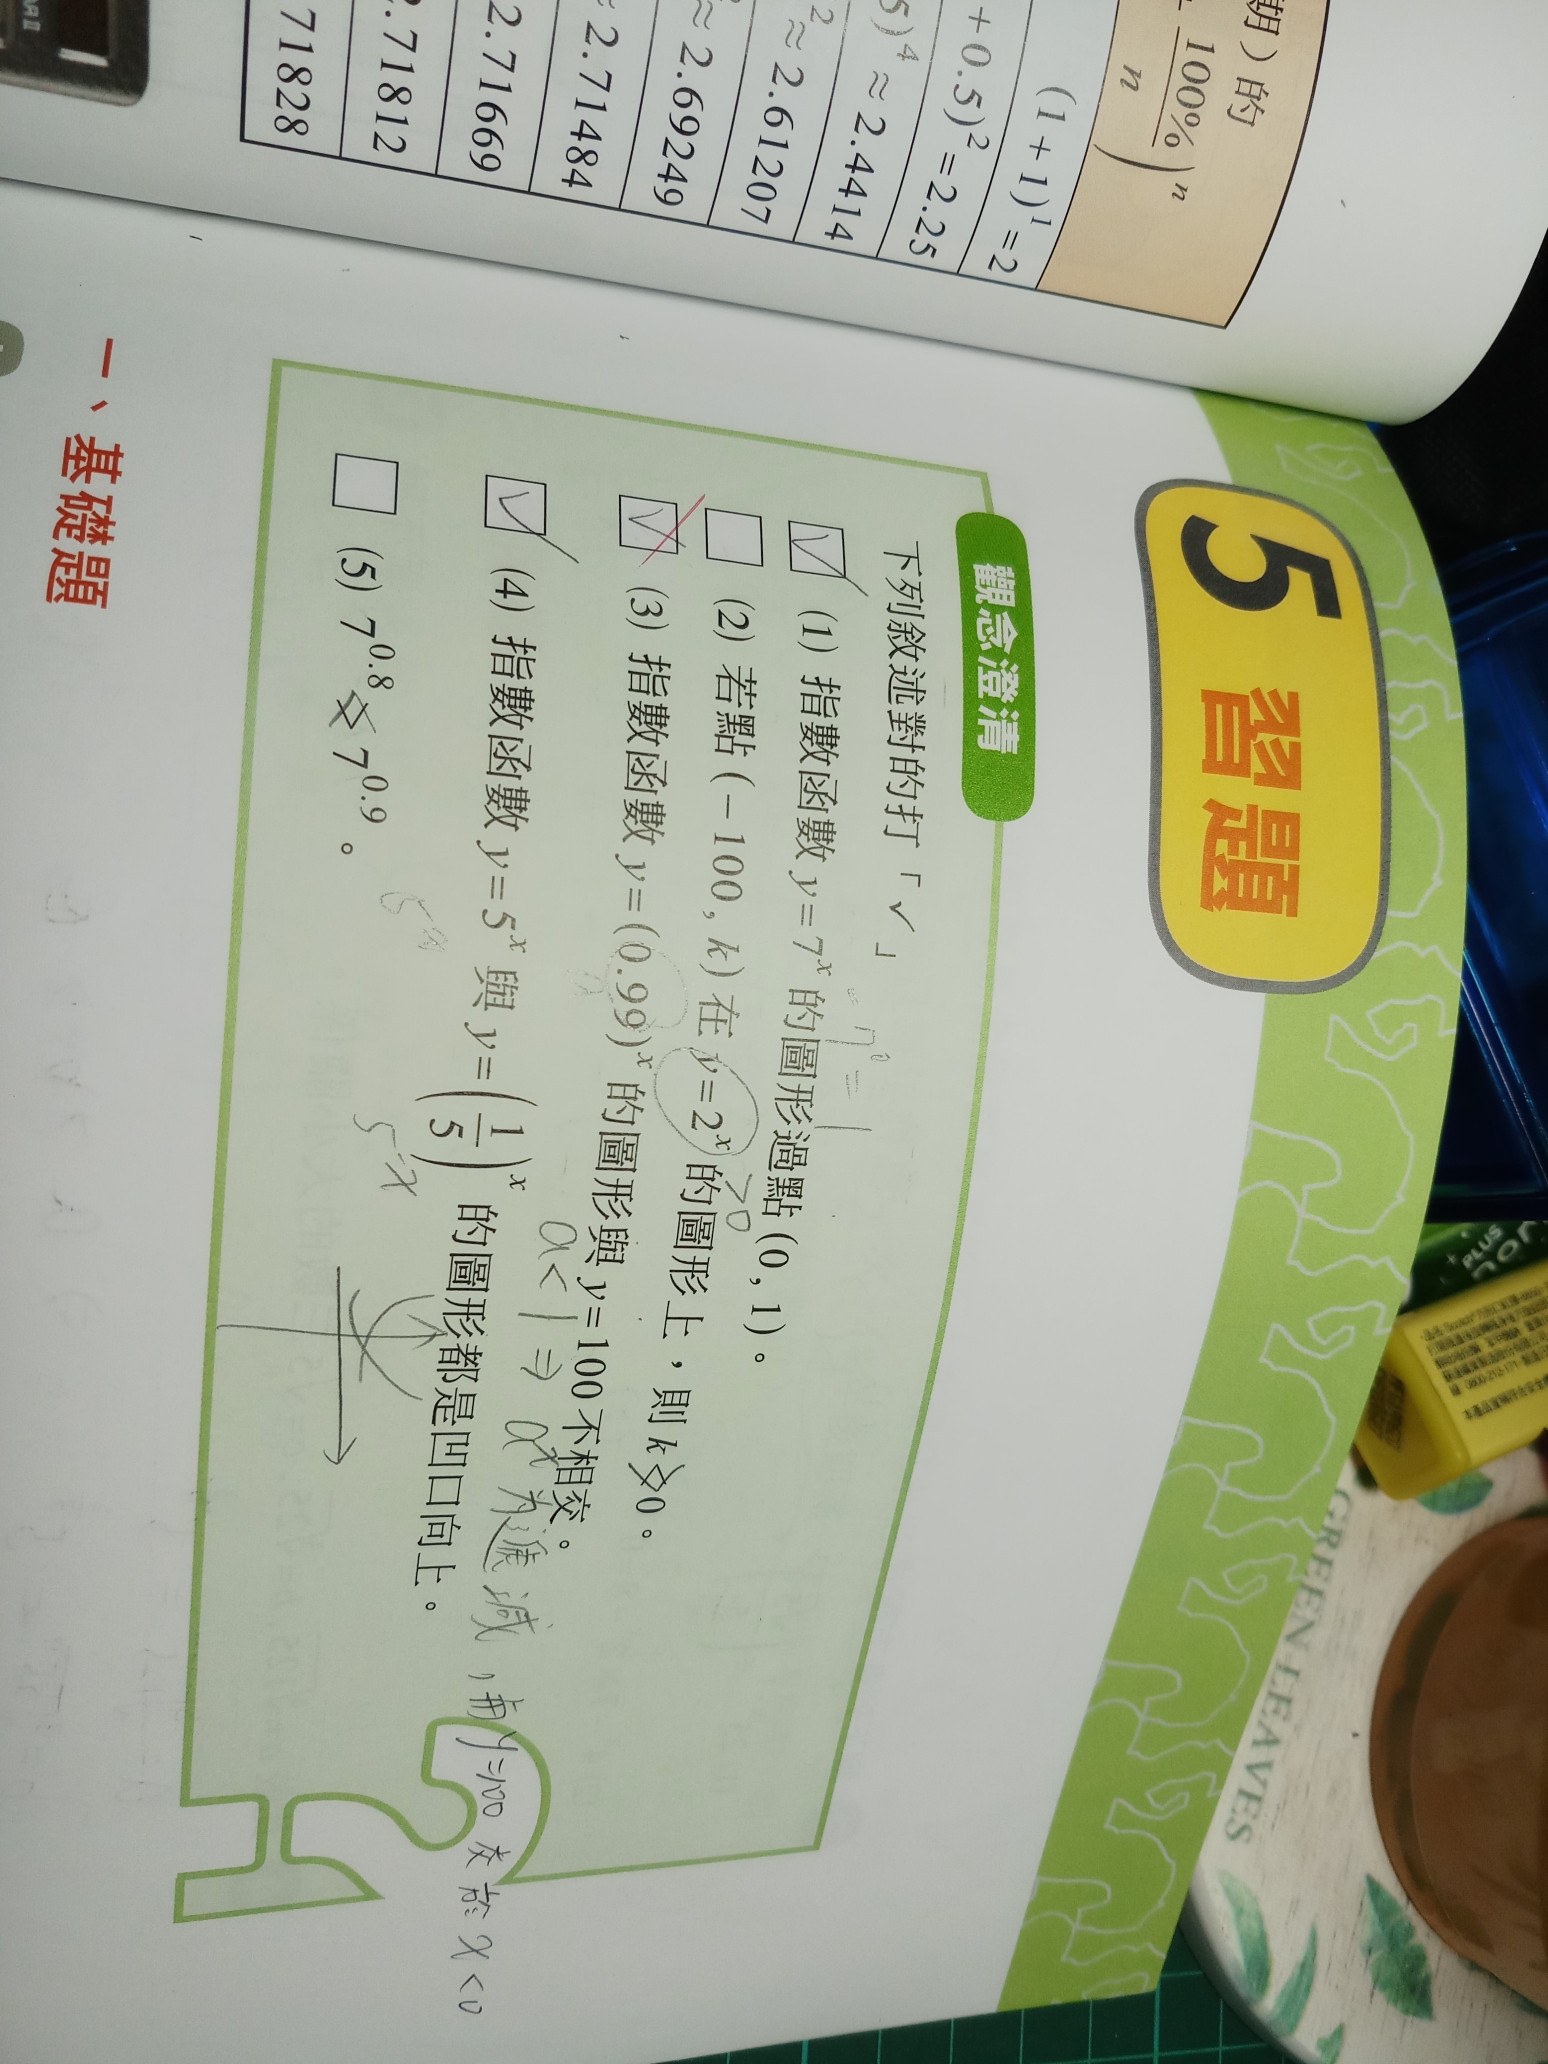 期）的
100%
n
n
(1+1)¹=2
+0.5)²=2.25
5)⁴≈2.4414
≈2.61207
≈2.69249
2.71484
2.71669
2.71812
71828
5 習題
觀念澄清
下列敘述對的打「✓」
=7⁰=1
✓ (1) 指數函數 y=7ˣ 的圖形過點 (0, 1)。
>0
□ (2) 若點 (-100, k) 在 y=2ˣ 的圖形上，則 k 0。
✓ (3) 指數函數 y=(0.99)ˣ 的圖形與 y=100 不相交。
a<1⇒aˣ為遞減，有y=100交於x<0
✓ (4) 指數函數 y=5ˣ 與 y=(1/5)ˣ 的圖形都是凹口向上。
5⁻ˣ
□ (5) 7^0.8 7^0.9。
一、基礎題
GREEN LEAVES